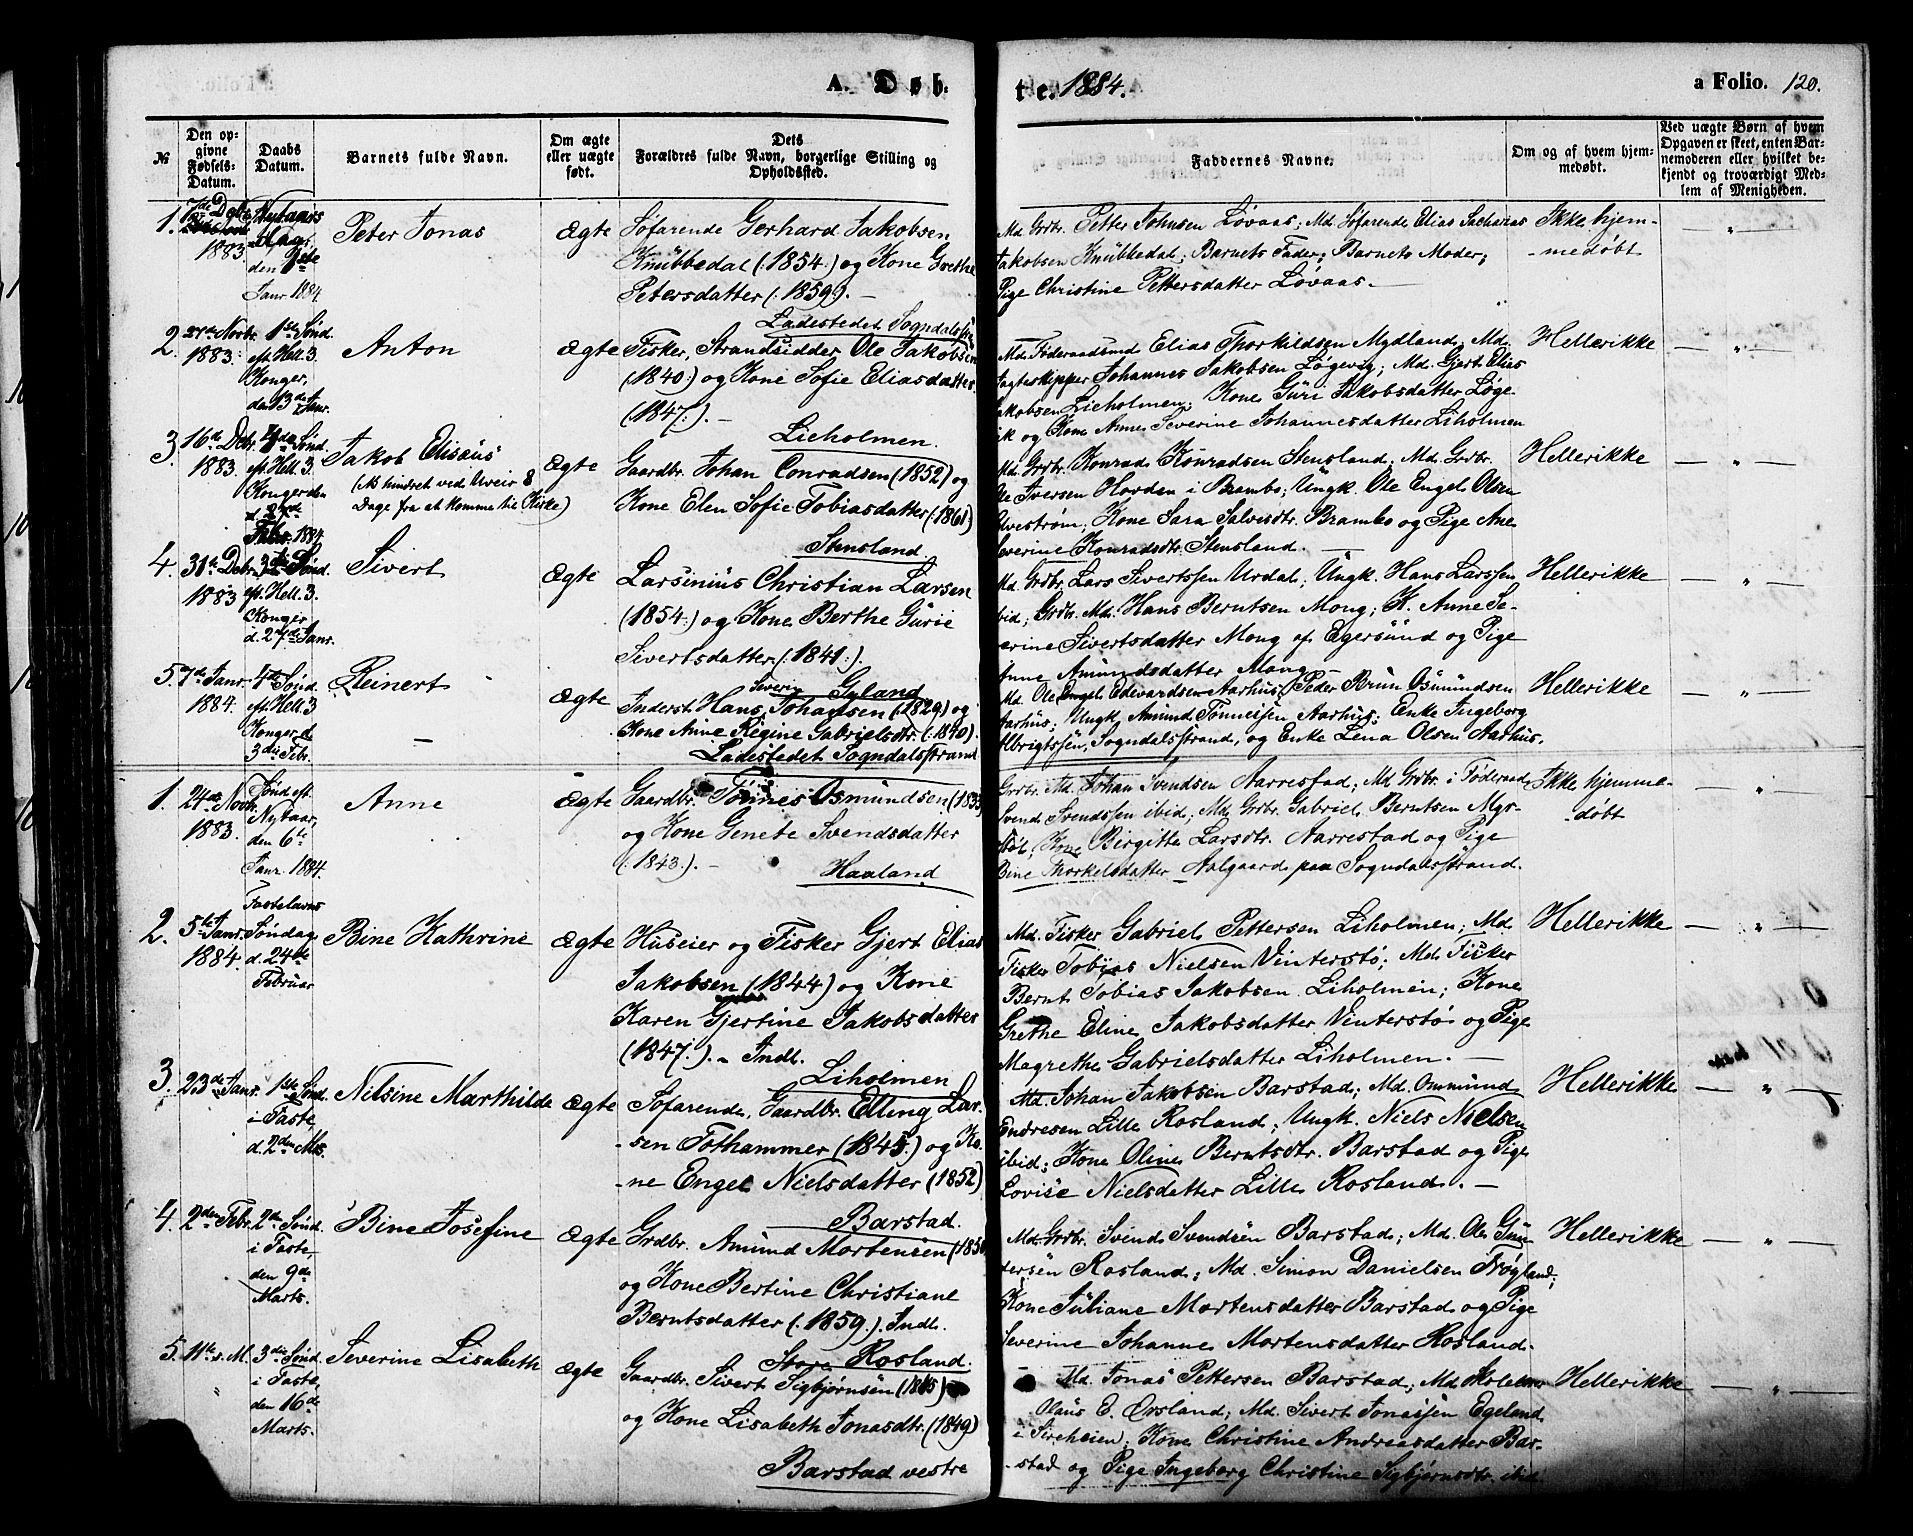 A. Døb-
te. 1884.
a Folio. 120.
№
Den op-
givne
Fødsels-
Datum.
Daabs
Datum.
Barnets fulde Navn.
Om ægte
eller uægte
født.
Dets
Forældres fulde Navn, borgerlige Stilling og
Opholdssted.
Faddernes Navne.
Om og af hvem hjem-
medøbt.
Ved uægte Børn af hvem
Opgaven er skeet, enten Bar-
nemoderen eller hvilket be-
kjendt og troværdigt Med-
lem af Menigheden.
1.
7de Debr
1883
Nytaars
Dag,
den 1ste
Janr 1884
Peter Jonas
Ægte
Søfarende Gerhard Jakobsen
Knubbedal (1854.) og Kone Grethe
Petersdatter (1859). —
Ladestedet Sogndalsstr.
Md. Grdbr. Petter Johnsen Løvaas; Md. Søfarende Elias Sacharias
Jakobsen Knubbedal; Barnets Fader; Barnets Moder;
Pige Christine Pettersdatter Løvaas. —
Ikke hjem-
-medøbt
— „ —
2.
27de Novbr
1883.
1ste Sønd.
eft. Hell. 3.
Konger,
den 13de Janr.
Anton
Ægte
Fisker, Strandsidder Ole Jakobsen
(1840.) og Kone Sofie Eliasdatter
(1847.) —
Lieholmen.
Md. Føderaadsmd Elias Thorkildsen Mydland, Md.
Jagteskipper Johannes Jakobsen Løgevig; Md. Gjert Elias
Jakobsen Lieholmen; Kone Guri Jakobsdatter Løge-
vik og Kone Anne Severine Johannesdatter Liholmen
Hellerikke
— „ —
3.
16de Debr
1883.
Sønd.
eft. Hell. 3.
Konger den
d. 27de
1884
Jakob Elisæus
(NB hindret ved Uveir 8
Dage fra at komme til Kirke)
Ægte
Gaardbr. Johan Conradsen (1852) og
Kone Elen Sofie Tobiasdatter (1861)
Stensland.
Md. Grdbr. Konrad Konradsen Stensland, Md. Grdbr.
Ole Iversen Hovden i Brambo; Ungk. Ole Engel Olsen
Elvestrøm; Kone Sara Salvesdtr. Brambo og Pige Ane
Severine Konradsdtr. Stensland. —
Hellerikke
— „ —
4.
31te Debr
1883
3die Sønd.
eft. Hell. 3.
Konger
d. 27de Janr.
Sivert
Ægte
Larsinius Christian Larsen
(1854.) og Kone Berthe Gurie
Sivertsdatter (1841.)
Gyland
Md. Grdbr. Lars Sivertssen Urdal; Ungk. Hans Larssen
ibid; Grdbr. Md. Hans Berntsen Mong; K. Anne Se-
verine Sivertsdatter Mong af Egersund og Pige
Anne Amundsdatter Mong —
Hellerikke
— „ —
5.
7de Janr
1884.
4de Sønd.
eft. Hell. 3
Konger d.
3die Febr.
Reinert
Ægte
Inderst Hans Severin Johansen (1829) og
Kone Anne Regine Gabrielsdtr. (1840).
Ladestedet Sogndalsstrand
Md. Ole Engel Edvardsen Aarhus; Peder Brun Osmundsen
Aarhus; Ungk. Amund Tønnessen Aarhus; Enke Ingeborg
Olbrigtssen, Sogndalsstrand, og Enke Lena Olsen Aarhus.
Hellerikke
— „ —
1.
24de Novbr.
1883.
Sønd eft.
Nytaar,
den 6te
Janr. 1884.
Anne
Ægte
Gaardbr. Tønnes Osmundsen (1833)
og Kone Genete Svendsdatter
(1843.) —
Haaland
Grdbr. Md. Johan Svendsen Aarrestad; Md. Grdbr. i Føderaad
Svend Svendssen ibid; Md. Grdbr. Gabriel Berntsen Myr-
støl; Kone Birgitte Larsdtr. Aarrestad og Pige
Bine Thorkelsdatter Aalgaard paa Sogndalsstrand.
Ikke hjemme-
-døbt
— „ —
2.
5te Janr.
1884.
Fastelavns
Søndag
d. 24de
Februar
Bine Kathrine
Ægte
Huseier og Fisker Gjert Elias
Jakobsen (1844) og Kone
Karen Gjertine Jakobsdatter
(1847.). — Indl.
Liholmen
Md. Fisker Gabriel Pettersen Liholmen; Md.
Fisker Tobias Nielsen Vinterstø; Md. Fisker
Bernt Tobias Jakobsen Liholmen; Kone
Grethe Eline Jakobsdatter Vinterstø og Pige
Magrethe Gabrielsdatter Liholmen. —
Hellerikke
— „ —
3.
23de Janr.
1ste Sønd.
i Faste,
d. 2den Mts.
Nilsine Marthilde
Ægte
Søfarende, Gaardbr. Elling Lar-
-sen Tothammer (1845.) og Ko-
-ne Engel Nielsdatter (1852)
Barstad.
Md. Johan Jakobsen Barstad; Md. Ommund
Endresen Lille Rosland; Ungk. Niels Nielsen
ibid; Kone Oline Berntsdtr. Barstad og Pige
Lovise Nielsdatter Lille Rosland. —
Hellerikke
— „ —
4.
2den Febr.
2den Sønd.
i Faste,
den 9de
Marts.
Bine Josefine
Ægte
Grdbr. Amund Mortensen (1850
og Kone Bertine Christiane
Berntsdatter (1859.). Indl.
Store Rosland.
Md. Grdbr. Svend Svendsen Barstad; Md. Ole Gun-
dersen Rosland; Md. Simon Danielsen Frøyland;
Kone Juliane Mortensdatter Barstad og Pige
Severine Johanne Mortensdatter Rosland.
Hellerikke
— „ —
5.
11te s. M.
3die Sønd.
i Faste,
den 16de
Marts.
Severine Lisabeth
Ægte
Gaardbr. Sivert Sigbjørnsen (1845)
og Kone Lisabeth Jonasdtr. (1849)
Barstad vestre
Md. Jonas Pettersen Barstad; Md. Skolelærer
Olaus E. Ørsland; Md. Sivert Jonassen Egeland
i Sireheien; Kone Christine Andreasdatter Bar-
-stad og Pige Ingeborg Christine Sigbjørnsdtr. ibid
Hellerikke
— „ —